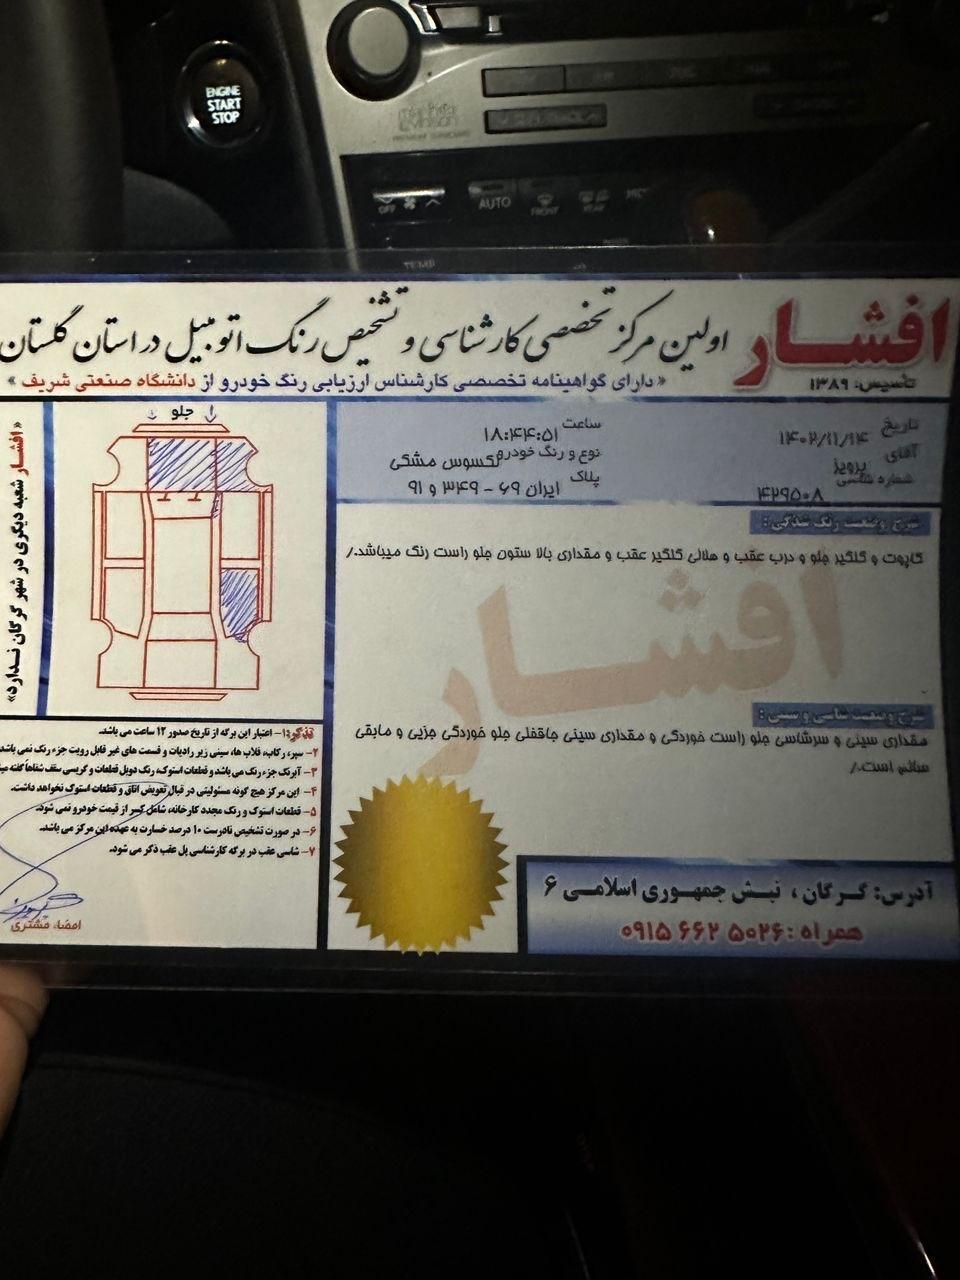 ENGINE
START
STOP
OFF
AUTO
FRONT
REAR
افشار
تأسیس: ۱۳۸۹
اولین مرکز تخصصی کارشناسی و تشخیص رنگ اتومبیل در استان گلستان
« دارای گواهینامه تخصصی کارشناس ارزیابی رنگ خودرو از دانشگاه صنعتی شریف »
تاریخ ۱۴۰۲/۱۱/۱۴ ساعت ۱۸:۴۴:۵۱
آقای پرویز نوع و رنگ خودرو لکسوس مشکی
شماره شاسی ۴۲۹۵۰۸ پلاک ایران ۶۹ - ۳۴۹ و ۹۱
شرح وضعیت رنگ شدگی :
کاپوت و گلگیر جلو و درب عقب و هلالی گلگیر عقب و مقداری بالا ستون جلو راست رنگ میباشد./
افشار
شرح وضعیت شاسی و سینی :
مقداری سینی و سرشاسی جلو راست خوردگی و مقداری سینی جاقفلی جلو خوردگی جزیی و مابقی
سالم است./
آدرس: گرگان ، نبش جمهوری اسلامی ۶
همراه : ۵۰۲۶ ۶۶۲ ۰۹۱۵
جلو
«افشار شعبه دیگری در شهر گرگان ندارد»
تذکر: ۱- اعتبار این برگه از تاریخ صدور ۱۲ ساعت می باشد.
۲- سپر، رکاب، قلاب ها، سینی زیر رادیات و قسمت های غیر قابل رویت جزء رنگ نمی باشد
۳- آبرنگ جزء رنگ می باشد و قطعات استوک، رنگ دوبل قطعات و گریسی سقف شفاهاً گفته
۴- این مرکز هیچ گونه مسئولیتی در قبال تعویض اتاق و قطعات استوک نخواهد داشت.
۵- قطعات استوک و رنگ مجدد کارخانه، شامل کسر از قیمت خودرو نمی شود.
۶- در صورت تشخیص نادرست ۱۰ درصد خسارت به عهده این مرکز می باشد.
۷- شاسی عقب در برگه کارشناسی پل عقب ذکر می شود.
امضاء مشتری